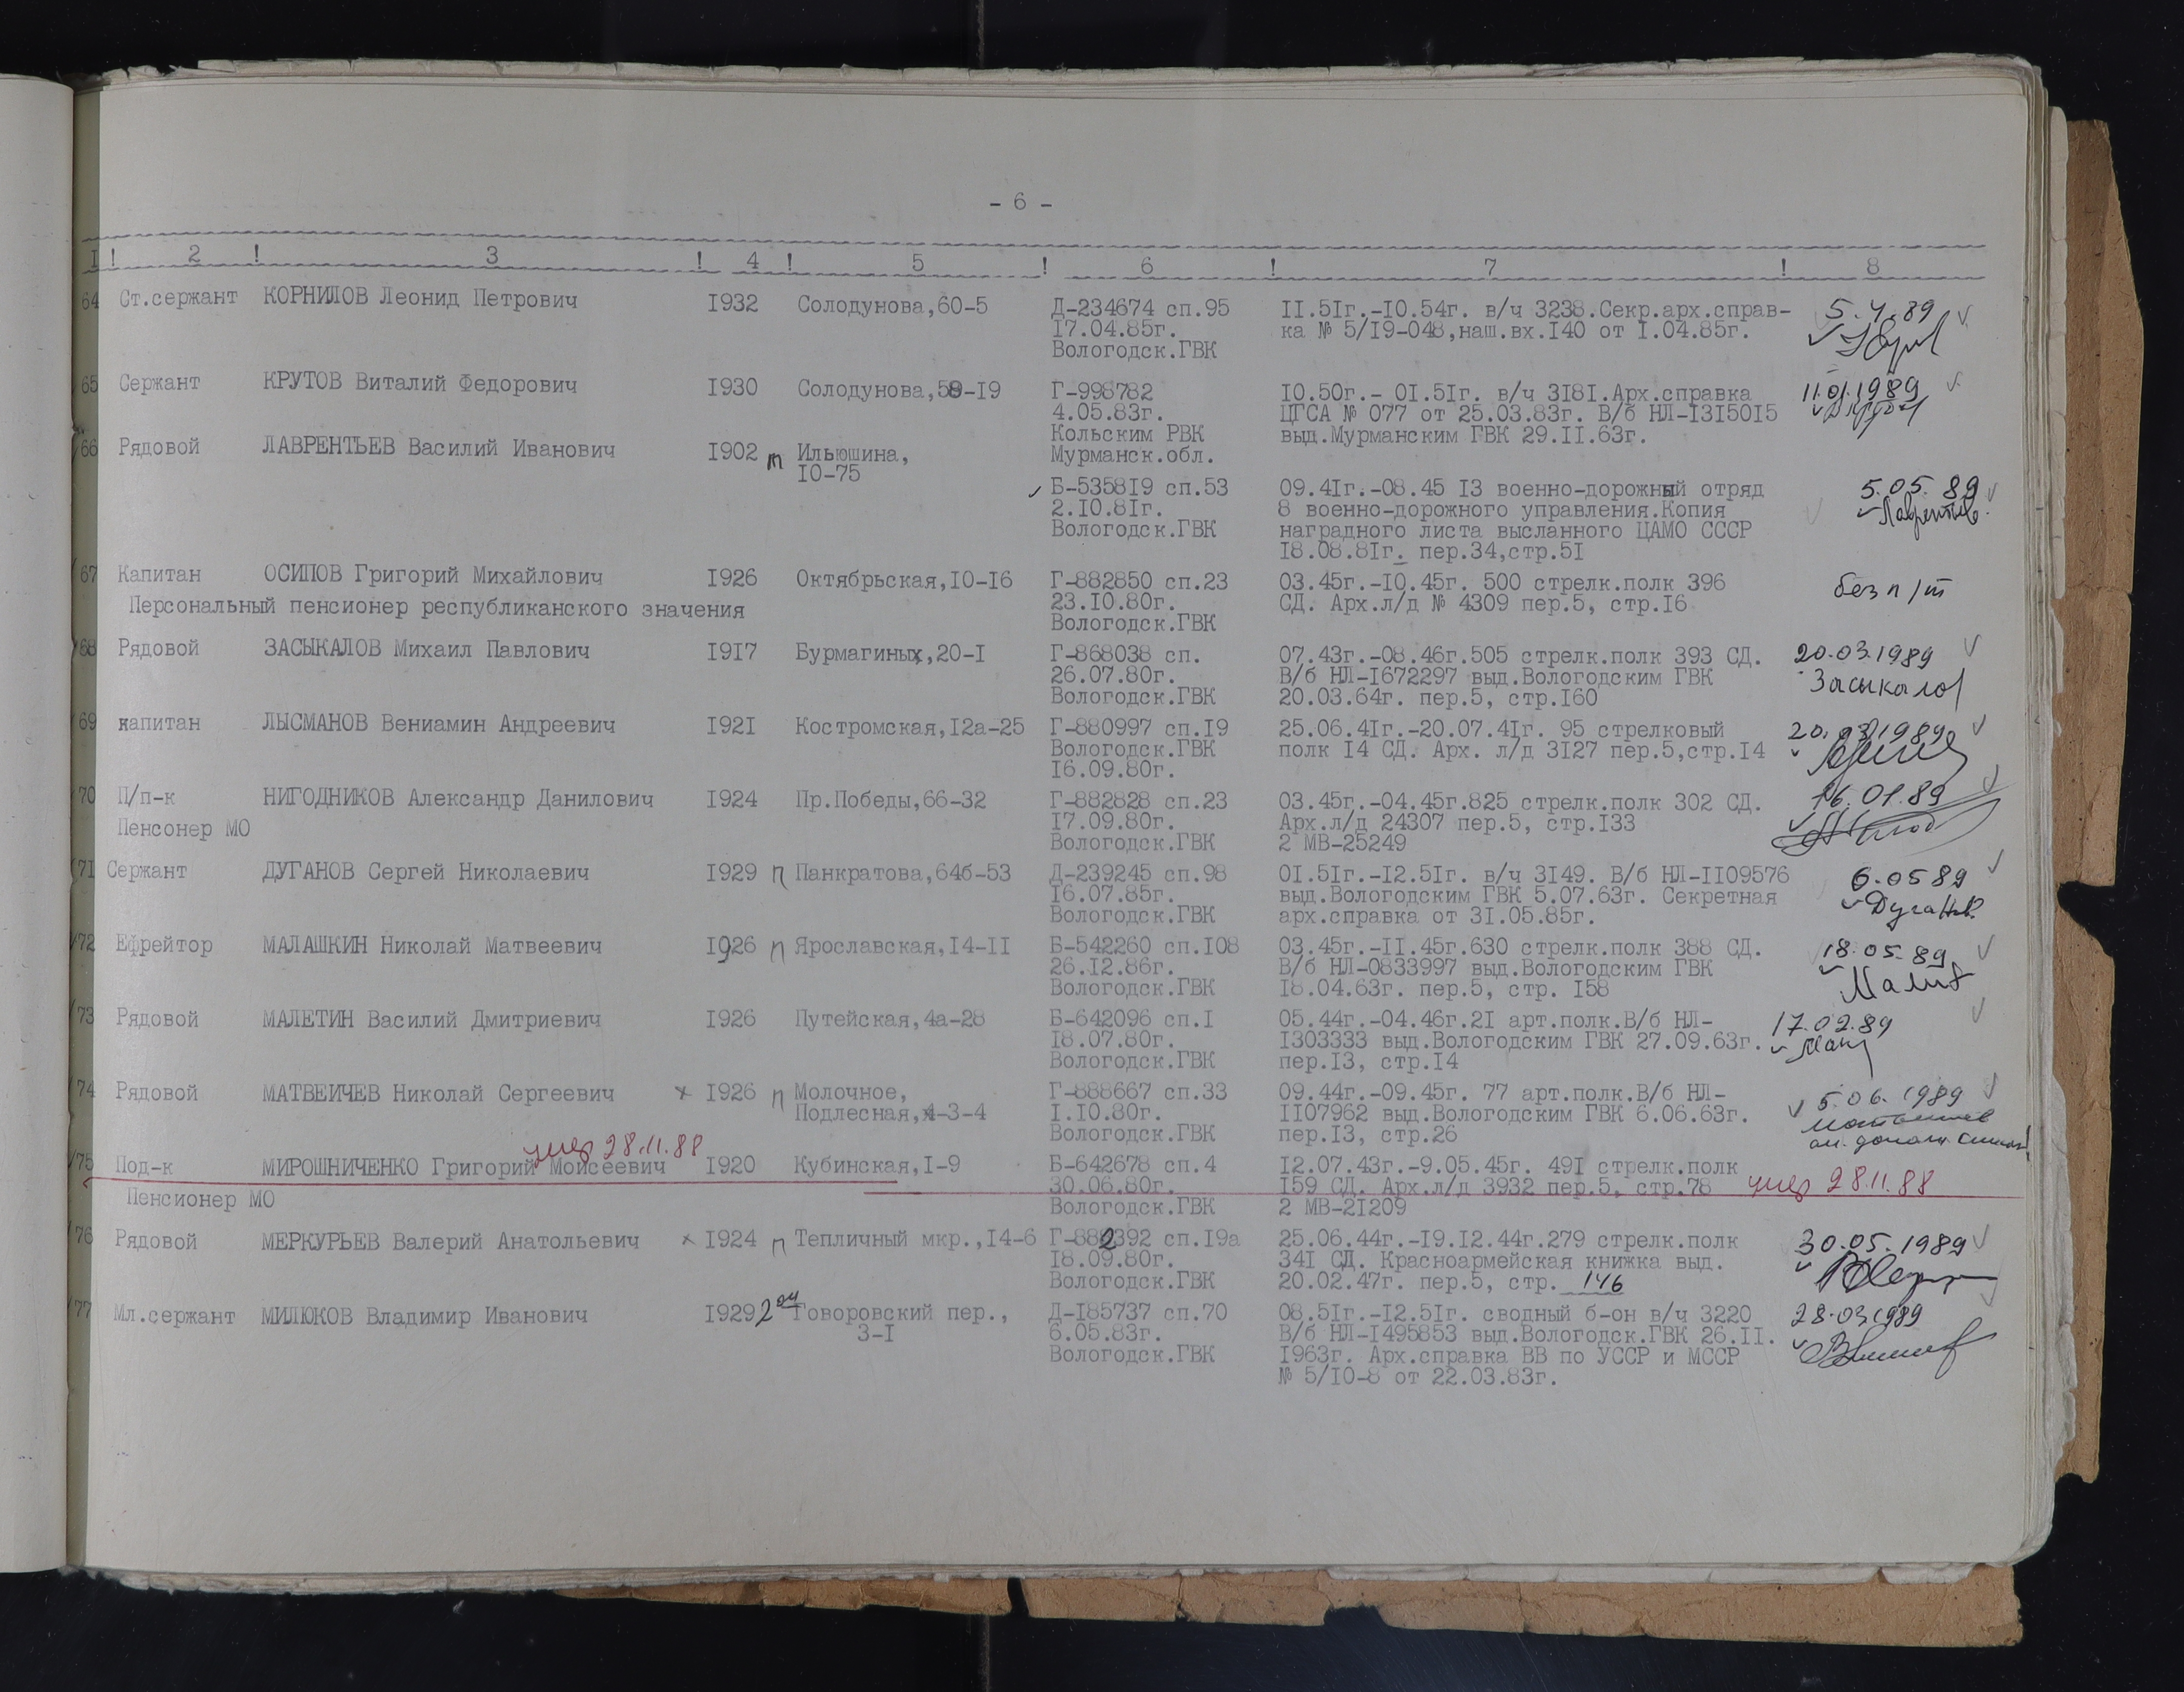 - 6 -
I ! 2 ! 3 ! 4 ! 5 ! 6 ! 7 ! 8
64 Ст.сержант КОРНИЛОВ Леонид Петрович I932 Солодунова,60-5 Д-234674 сп.95 II.5Iг.-I0.54г. в/ч 3238.Секр.арх.справ- 5.4.89
I7.04.85г. ка № 5/I9-048,наш.вх.I40 от I.04.85г.
Вологодск.ГВК
65 Сержант КРУТОВ Виталий Федорович I930 Солодунова,58-I9 Г-998782 I0.50г.- 0I.5Iг. в/ч 3I8I.Арх.справка 11.01.1989
4.05.83г. ЦГСА № 077 от 25.03.83г. В/б НЛ-I3I50I5
Кольским РВК выд.Мурманским ГВК 29.II.63г.
66 Рядовой ЛАВРЕНТЬЕВ Василий Иванович I902 т Ильюшина, Мурманск.обл.
I0-75
Б-5358I9 сп.53 09.4Iг.-08.45 I3 военно-дорожный отряд 5.05.89
2.I0.8Iг. 8 военно-дорожного управления.Копия Лаврентьев
Вологодск.ГВК наградного листа высланного ЦАМО СССР
I8.08.8Iг. пер.34,стр.5I
67 Капитан ОСИПОВ Григорий Михайлович I926 Октябрьская,I0-I6 Г-882850 сп.23 03.45г.-I0.45г. 500 стрелк.полк 396 без п/т
Персональный пенсионер республиканского значения 23.I0.80г. СД. Арх.л/д № 4309 пер.5, стр.I6
Вологодск.ГВК
68 Рядовой ЗАСЫКАЛОВ Михаил Павлович I9I7 Бурмагиных,20-I Г-868038 сп. 07.43г.-08.46г.505 стрелк.полк 393 СД. 20.03.1989
26.07.80г. В/б НЛ-I672297 выд.Вологодским ГВК Засыкалов
Вологодск.ГВК 20.03.64г. пер.5, стр.I60
69 капитан ЛЫСМАНОВ Вениамин Андреевич I92I Костромская,I2а-25 Г-880997 сп.I9 25.06.4Iг.-20.07.4Iг. 95 стрелковый 20.03.1989
Вологодск.ГВК полк I4 СД. Арх. л/д 3I27 пер.5,стр.I4
I6.09.80г.
70 П/п-к НИГОДНИКОВ Александр Данилович I924 Пр.Победы,66-32 Г-882828 сп.23 03.45г.-04.45г.825 стрелк.полк 302 СД. 16.01.89
Пенсонер МО I7.09.80г. Арх.л/д 24307 пер.5, стр.I33
Вологодск.ГВК 2 МВ-25249
71 Сержант ДУГАНОВ Сергей Николаевич I929 п Панкратова,64б-53 Д-239245 сп.98 0I.5Iг.-I2.5Iг. в/ч 3I49. В/б НЛ-II09576 6.05 89
I6.07.85г. выд.Вологодским ГВК 5.07.63г. Секретная Дуганов
Вологодск.ГВК арх.справка от 3I.05.85г.
72 Ефрейтор МАЛАШКИН Николай Матвеевич I926 п Ярославская,I4-II Б-542260 сп.I08 03.45г.-II.45г.630 стрелк.полк 388 СД. 18.05.89
26.I2.86г. В/б НЛ-0833997 выд.Вологодским ГВК
Вологодск.ГВК I8.04.63г. пер.5, стр. I58
73 Рядовой МАЛЕТИН Василий Дмитриевич I926 Путейская,4а-28 Б-642096 сп.I 05.44г.-04.46г.2I арт.полк.В/б НЛ- 17.02.89
I8.07.80г. I303333 выд.Вологодским ГВК 27.09.63г.
Вологодск.ГВК пер.I3, стр.I4
74 Рядовой МАТВЕИЧЕВ Николай Сергеевич х I926 п Молочное, Г-888667 сп.33 09.44г.-09.45г. 77 арт.полк.В/б НЛ- 5.06.1989
Подлесная,4-3-4 I.I0.80г. II07962 выд.Вологодским ГВК 6.06.63г.
Вологодск.ГВК пер.I3, стр.26
умер 28.11.88
75 Под-к МИРОШНИЧЕНКО Григорий Моисеевич I920 Кубинская,I-9 Б-642678 сп.4 I2.07.43г.-9.05.45г. 49I стрелк.полк
30.06.80г. I59 СД. Арх.л/д 3932 пер.5, стр.78 умер 28.11.88
Пенсионер МО Вологодск.ГВК 2 МВ-2I209
76 Рядовой МЕРКУРЬЕВ Валерий Анатольевич х I924 п Тепличный мкр.,I4-6 Г-882392 сп.I9а 25.06.44г.-I9.I2.44г.279 стрелк.полк 30.05.1989
I8.09.80г. 34I СД. Красноармейская книжка выд.
Вологодск.ГВК 20.02.47г. пер.5, стр. 146
77 Мл.сержант МИЛЮКОВ Владимир Иванович I929 2ой Говоровский пер., Д-I85737 сп.70 08.5Iг.-I2.5Iг. сводный б-он в/ч 3220 28.03.1989
3-I 6.05.83г. В/б НЛ-I495853 выд.Вологодск.ГВК 26.II.
Вологодск.ГВК I963г. Арх.справка ВВ по УССР и МССР
№ 5/I0-8 от 22.03.83г.